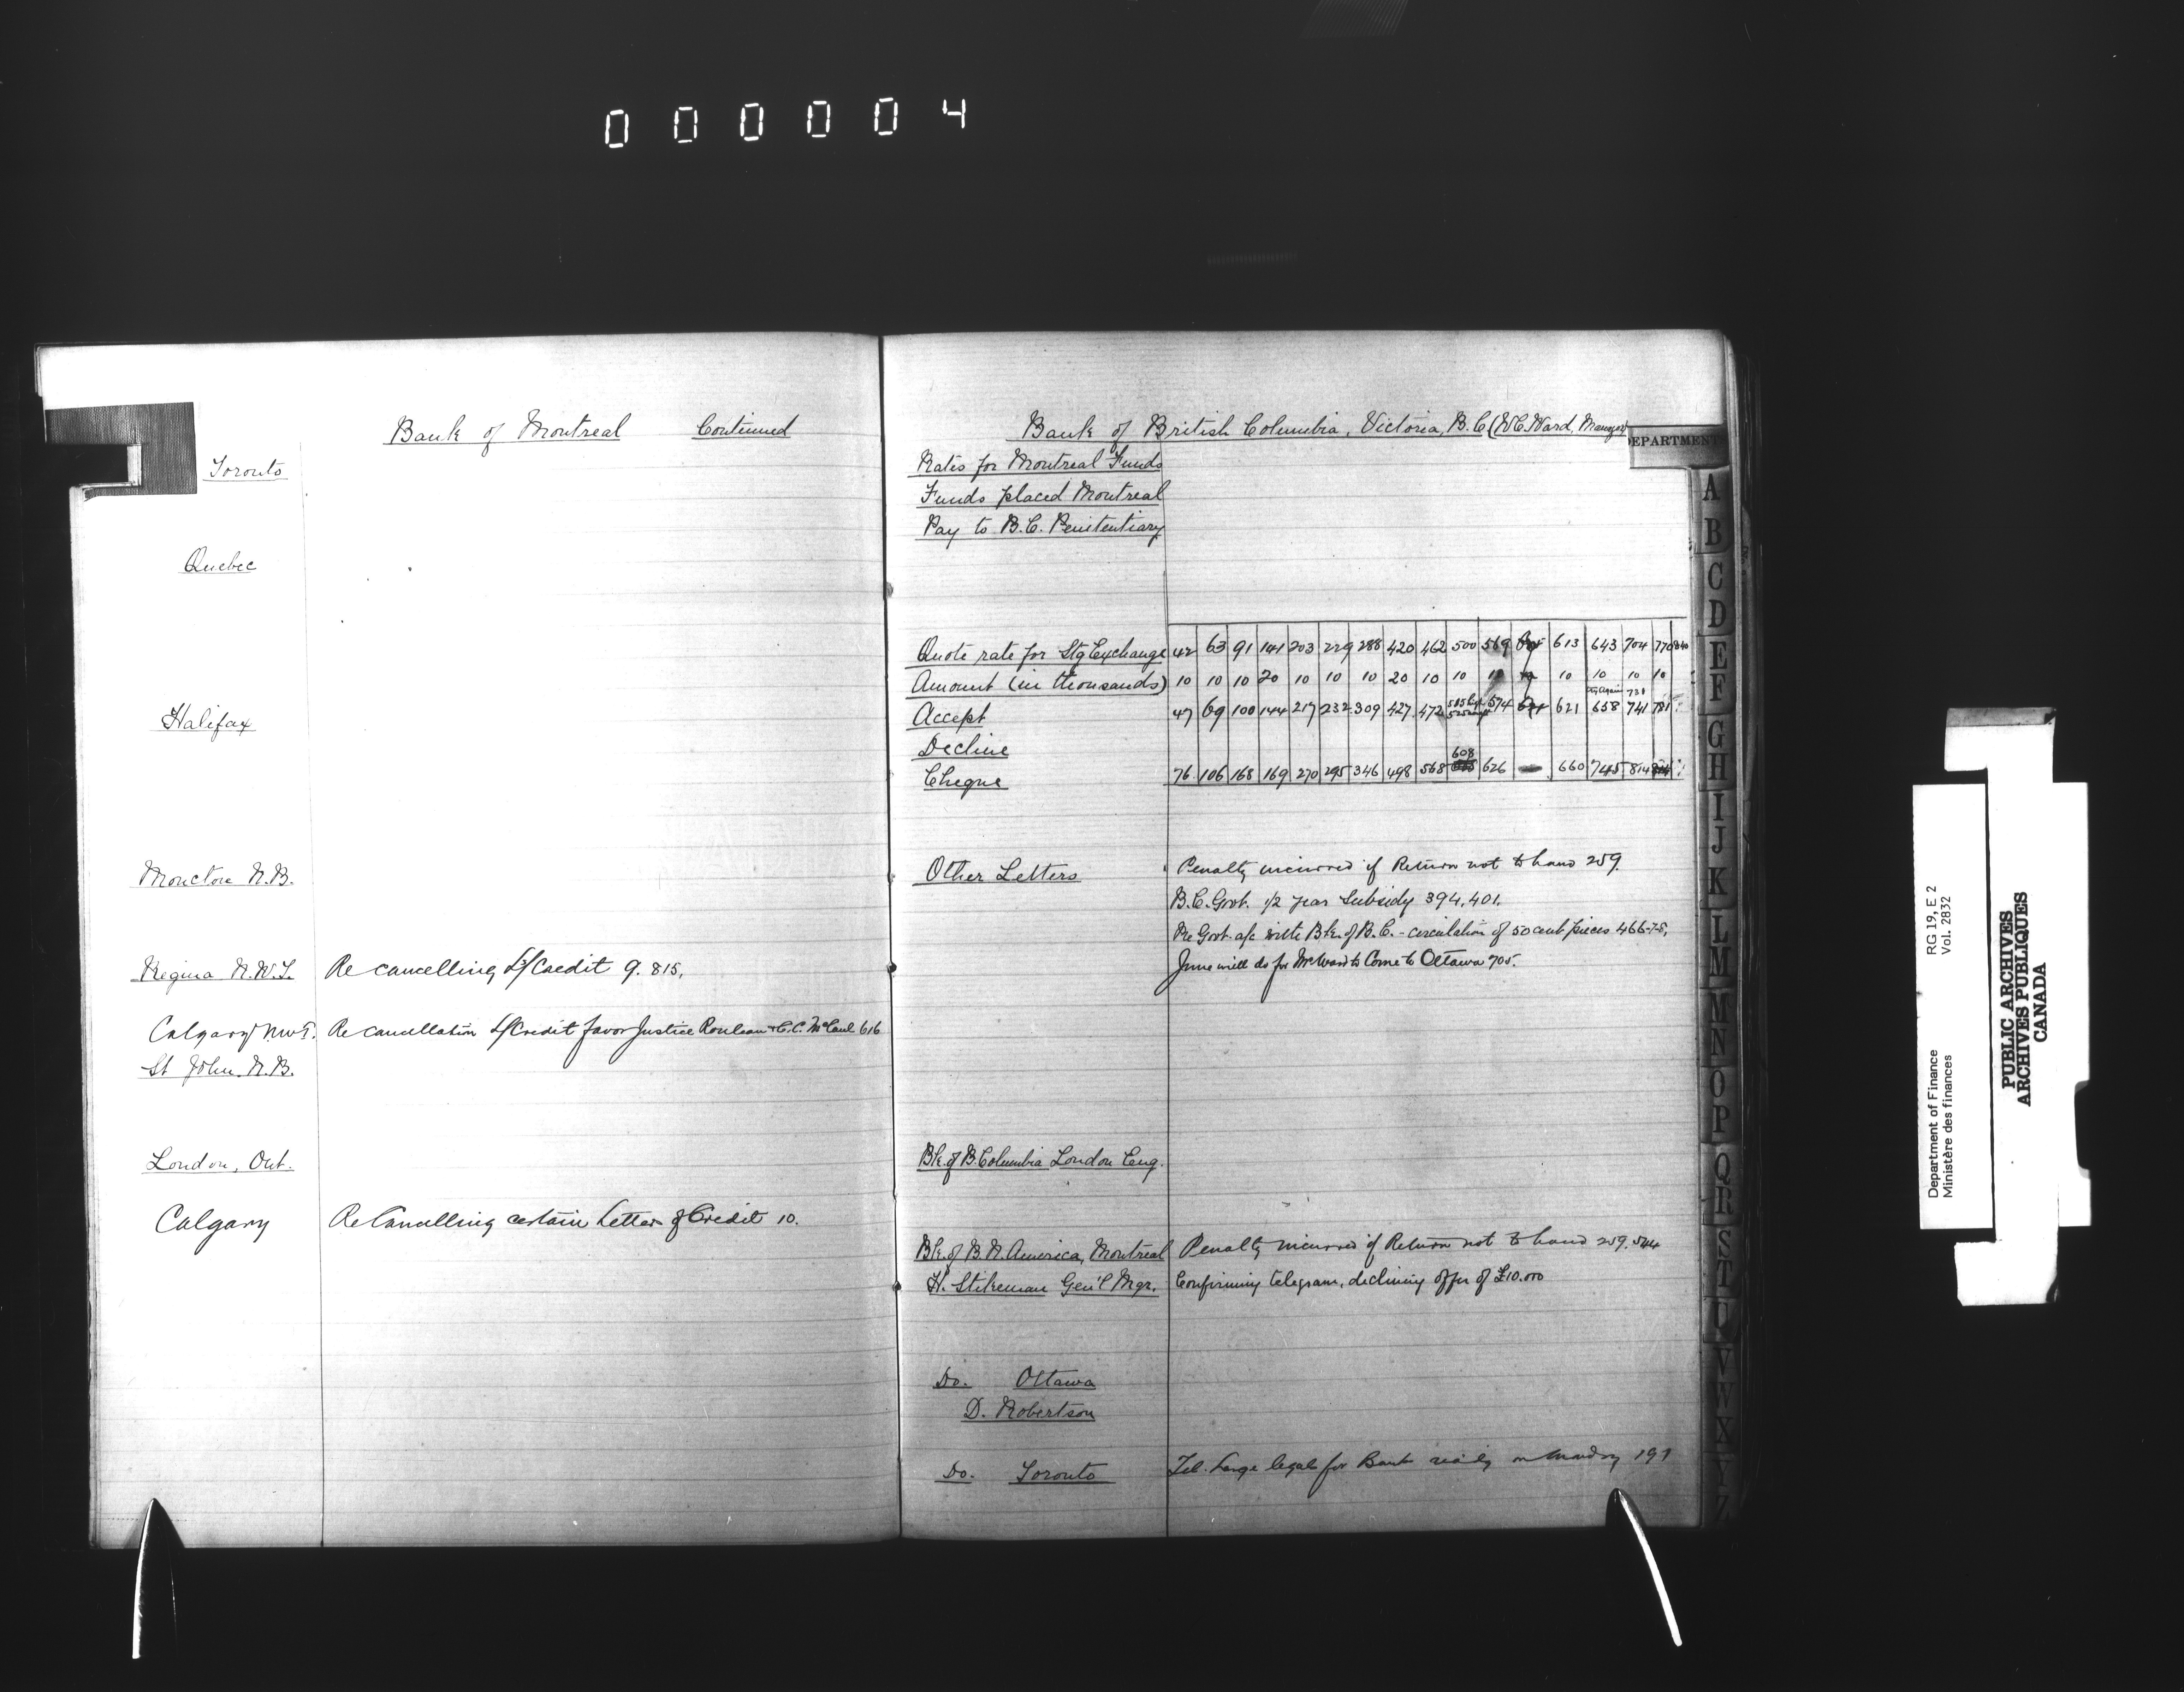 000004
Bank of Montreal Continued
Toronto
Quebec
Halifax
Moncton N.B.
Regina N.W.T. Re cancelling L/Credit 9. 815,
Calgary N.W.T. Re cancellation L/Credit favor Justice Rouleau & C.C. McCaul 616
St John. N.B.
London, Ont.
Calgary Re Cancelling certain Letters of Credit 10.
Bank of British Columbia, Victoria, B.C (W C Ward, Manager)
DEPARTMENT
Rates for Montreal Funds
Funds placed Montreal
Pay to B.C. Penitentiary
Quote rate for Stg Exchange 42 63 91 141 203 229 288 420 462 500 569 613 643 704 770 840
Amount (in thousands) 10 10 10 20 10 10 10 20 10 10 10 10 10 10 10
Accept 47 69 100 144 217 232 309 427 472 574 621 658 731 741 781
Decline
Cheque 76 106 168 169 270 295 346 498 568 608 626 — 660 745 814
Other Letters Penalty incurred if Return not to hand 259.
B.C. Govt. 1/2 year Subsidy 394, 401,
Re Govt. a/c with Bk. of B.C. - circulation of 50 cent pieces 466-75,
June will do for Mr Ward to Come to Ottawa 705.
Bk. of B. Columbia London Eng.
Bk. of B. N. America, Montreal Penalty incurred if Return not to hand 259. 544
H. Stikeman Gen'l Mgr. Confirming telegram, declining offer of £10.000
Do. Ottawa
D. Robertson
Do. Toronto Tel. Large legals for Bank ready on Monday 191
A
B
C
D
E
F
G
H
I
J
K
L
M
M
N
O
P
Q
R
S
T
U
V
W
X
Y
Z
Department of Finance RG 19, E 2
Ministère des finances Vol. 2832
PUBLIC ARCHIVES
ARCHIVES PUBLIQUES
CANADA